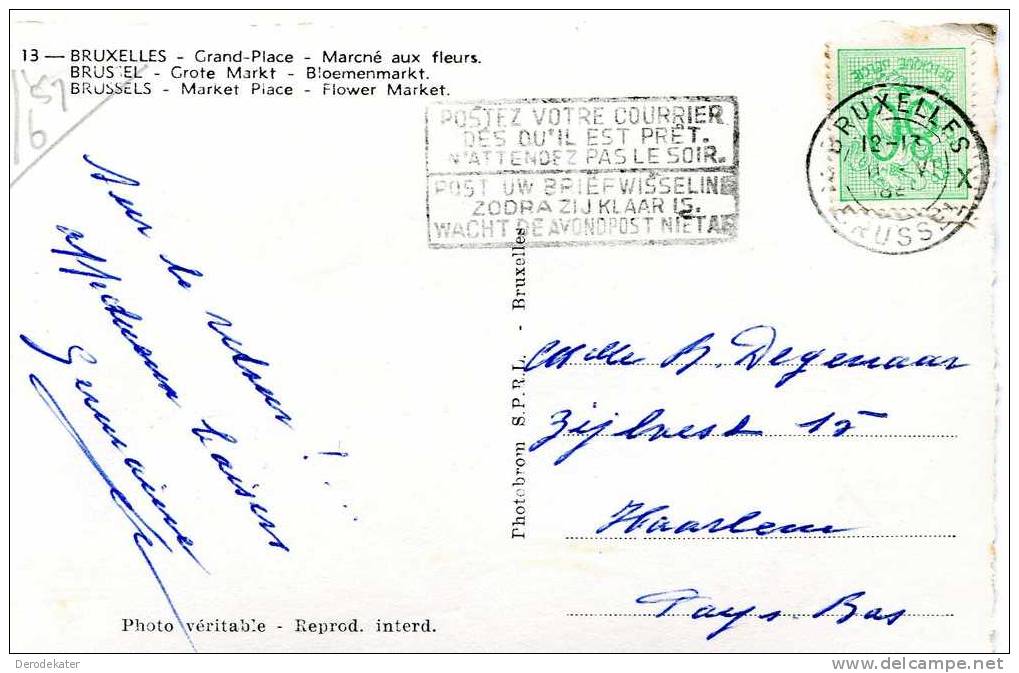 13 — BRUXELLES - Grand-Place - Marcné aux fleurs.
BRUSSEL - Grote Markt - Bloemenmarkt.
BRUSSELS - Market Place - Flower Market.
57
6
POSTEZ VOTRE COURRIER
DES QU'IL EST PRÊT.
N'ATTENDEZ PAS LE SOIR.
POST UW BRIEFWISSELING
ZODRA ZIJ KLAAR IS.
WACHT DE AVONDPOST NIET AF
BELGIQUE BELGIE
BRUXELLES X
12-13
BRUSSEL
Sur le retour ! ...
baisers
Germaine
Photobrom S.P.R.L. - Bruxelles
Melle B. Degenaar
Zijlvest 15
Haarlem
Pays Bas
Photo véritable - Reprod. interd.
Derodekater
delcampe.net